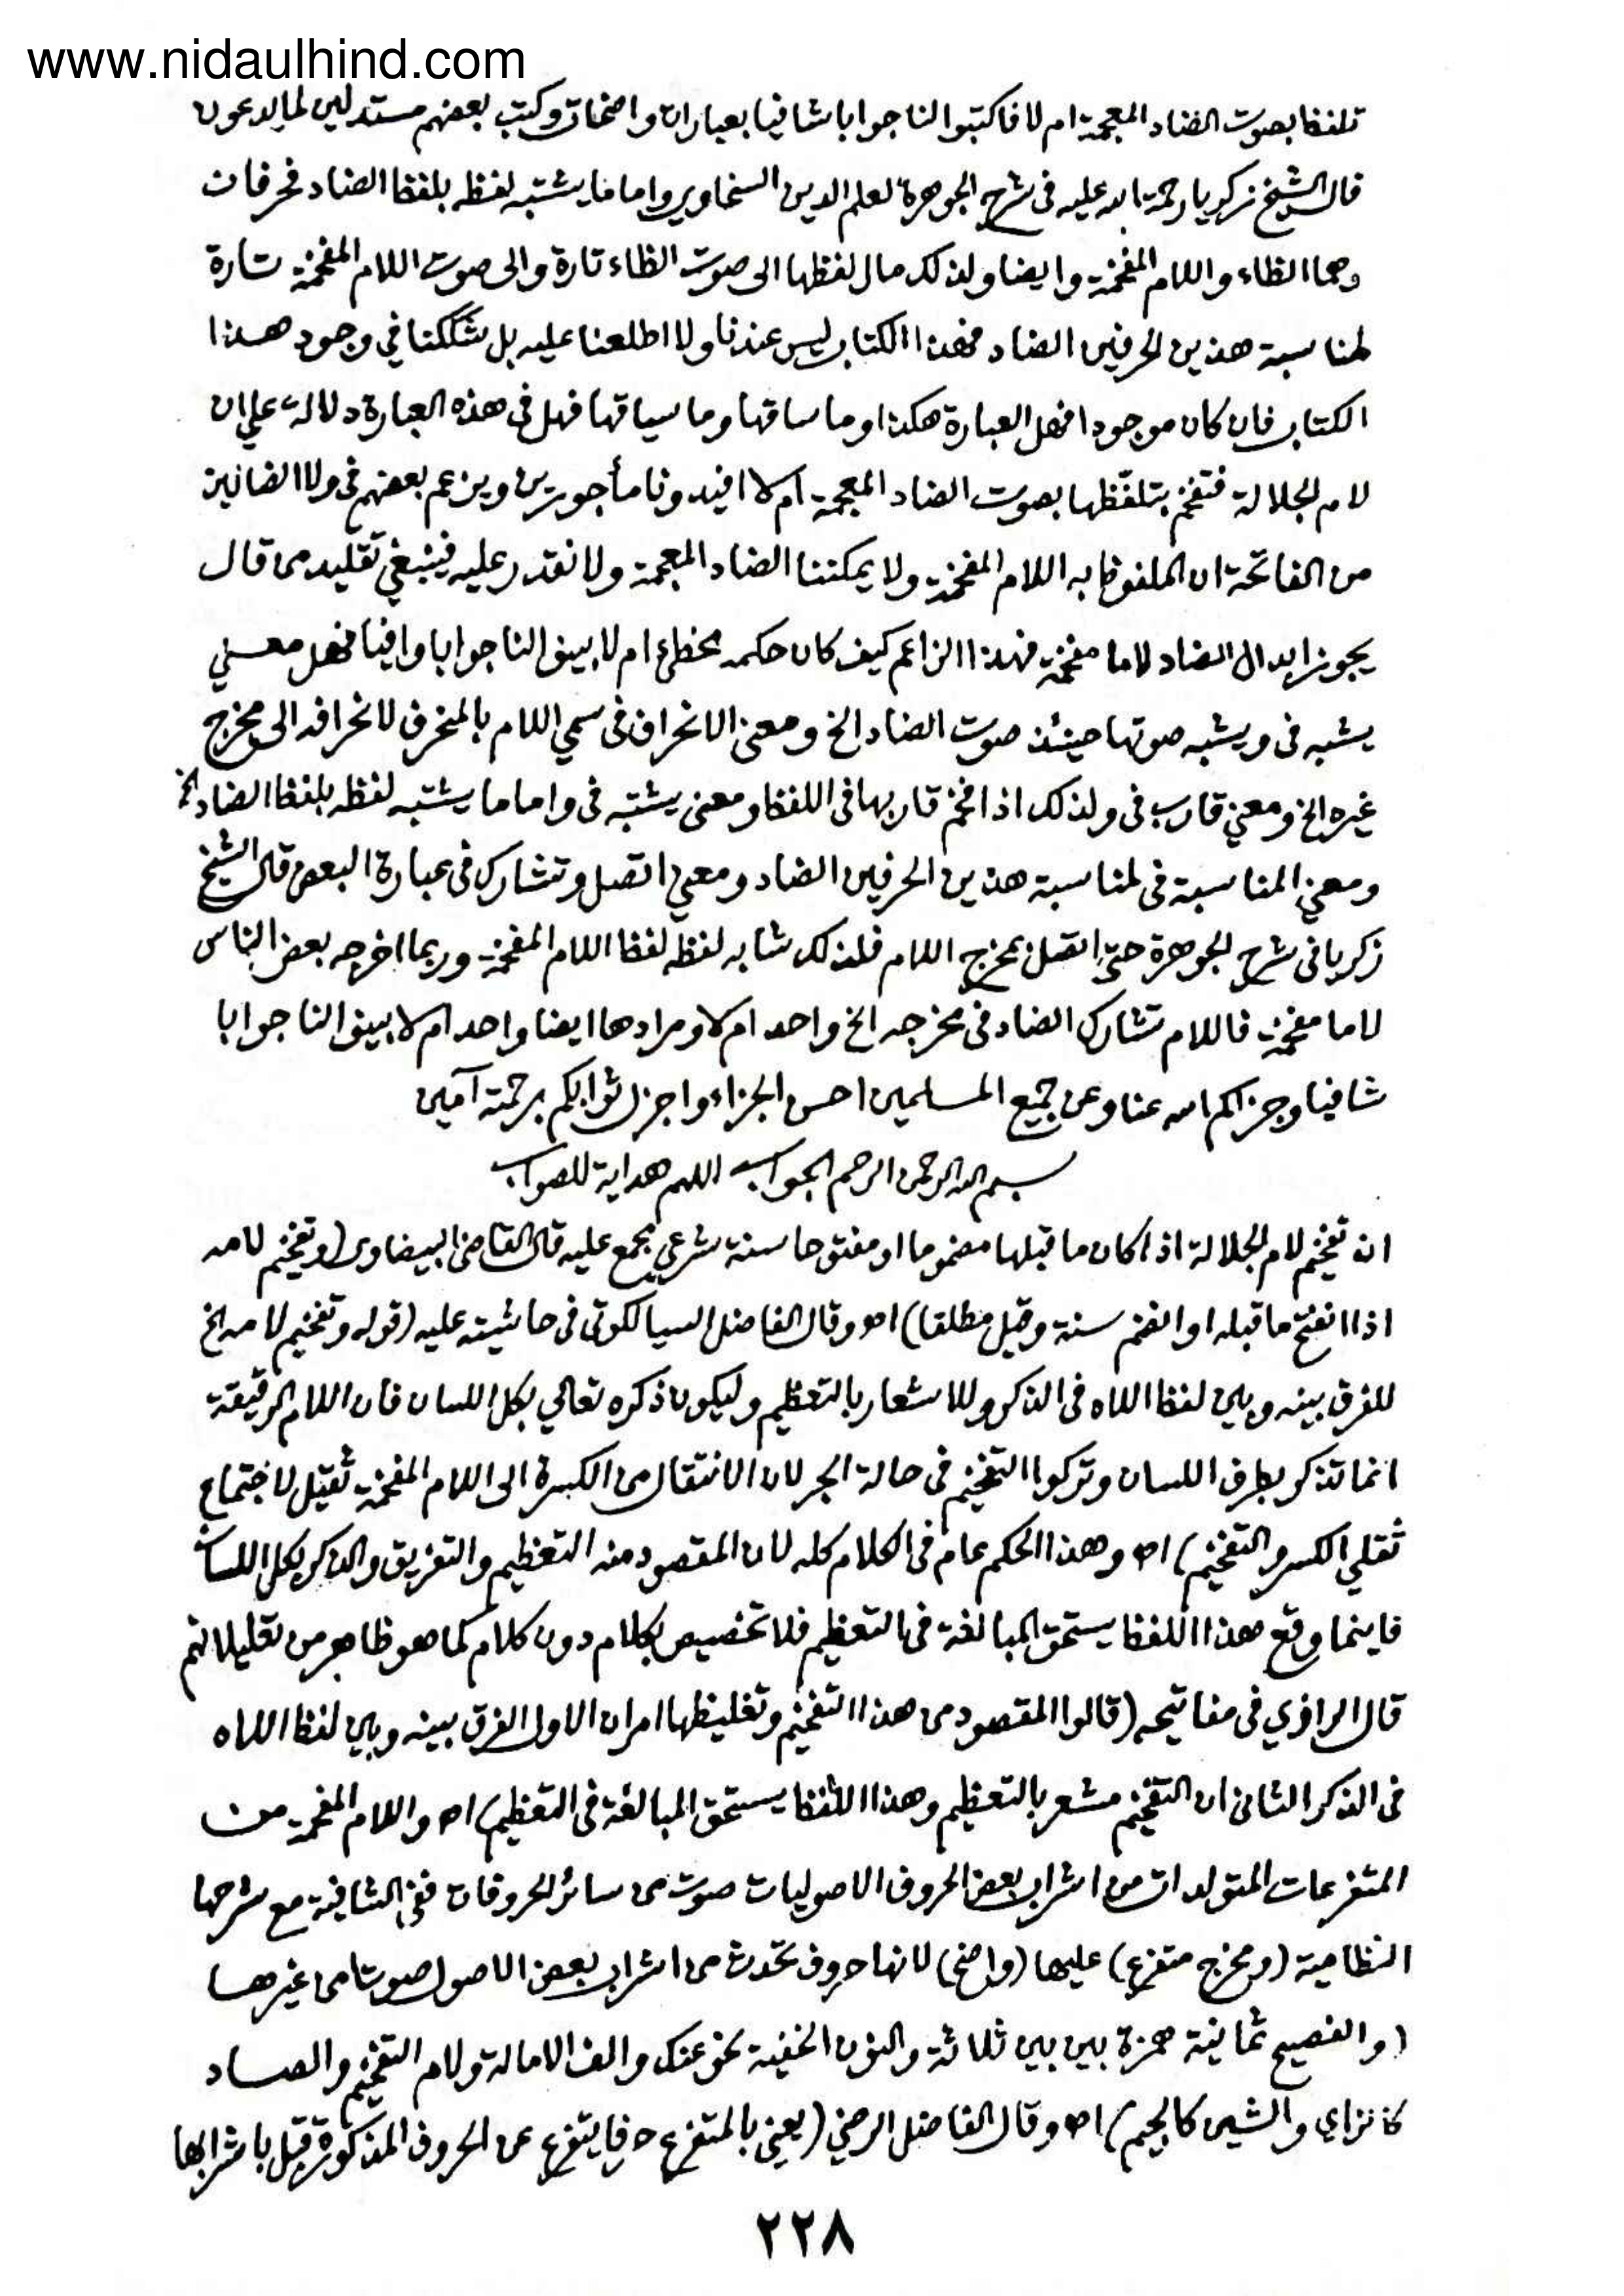 www.nidaulhind.com
تلفظا بصوت الضاد المعجمة ام لا فاكتبوا لنا جوابا شافيا بعبارات واضحات وكتب بعضهم مستدلين لما يدعون
قال الشيخ زكريا رحمة الله عليه فى شرح الجوهرة لعلم الدين السخاوي واما ما يشتبه لفظه بلفظ الضاد فحرفان
وهما الظاء واللام المفخمة وايضا ولذلك مال لفظها الى صوت الظاء تارة والى صوت اللام المفخمة تارة
لمناسبة هذين الحرفين الضاد فهذا الكتاب ليس عندنا ولا اطلعنا عليه بل شككنا في وجود هذا
الكتاب فان كان موجودا فهل العبارة هكذا وما ساقها وما سياقها فهل فى هذه العبارة دلالة على ان
لام الجلالة فتفخم بتلفّظها بصوت الضاد المعجمة ام لا افيدونا مأجورين ويزعم بعضهم فى ولا الضالين
من الفاتحة ان الملفوظ به اللام المفخمة ولا يمكننا الضاد المعجمة ولا نقدر عليه فينبغي تقليد من قال
يجوز ابدال الضاد لاما مفخمة فهذا الزاعم كيف كان حكمه مخطئ ام لا بينوا لنا جوابا وافيا فهل معنى
يشبه فى ويشبه صوتها حينئذ صوت الضاد الخ ومعنى الانحراف فى سمي اللام بالمنحرف لانحرافه الى مخرج
غيره الخ ومعني قارب فى ولذلك اذا فخم قاربها فى اللفظ ومعنى يشتبه فى واما ما يشتبه لفظه بلفظ الضاد الخ
ومعني المناسبة فى لمناسبة هذين الحرفين الضاد ومعنى اتصل وتشارك فى عبارة البعض قال الشيخ
زكريا فى شرح الجوهرة حتى اتصل بمخرج اللام فلذلك شابه لفظه لفظ اللام المفخمة وربما اخرجه بعض الناس
لاما مفخمة فاللام تشارك الضاد فى مخرجه الخ واحد ام لا ومرادها ايضا واحد ام لا بينوا لنا جوابا
شافيا وجزاكم الله عنا وعن جميع المسلمين احسن الجزاء واجزل ثوابكم برحمته آمين
بسم الله الرحمن الرحيم الجواب اللهم هداية للصواب
ان تفخيم لام الجلالة اذا كان ما قبلها مضموما او مفتوحا سنة شرعي مجمع عليه قال القاضى البيضاوى (وتفخيم لامه
اذا انفتح ما قبله او انضم سنة وقيل مطلقا) اه وقال الفاضل السيالكوتى فى حاشيته عليه (قوله وتفخيم لامه الخ
للفرق بينه وبين لفظ اللاه فى الذكر وللاشعار بالتعظيم وليكون ذكره تعالي بكل اللسان فان اللام الرقيقة
انما تذكر بطرف اللسان وتركوا التفخيم فى حالة الجر لان الانتقال من الكسرة الى اللام المفخمة ثقيل لاجتماع
ثقلي الكسر والتفخيم) اه وهذا الحكم عام فى الكلام كله لان المقصود منه التعظيم والتفريق والذكر بكل اللسان
فاينما وقع هذا اللفظ يستحق المبالغة فى التعظيم فلا تخصيص بكلام دون كلام كما هو ظاهر من تعليلاتهم
قال الرازي فى مفاتيحه (قالوا المقصود من هذا التفخيم وتغليظها امران الاول الفرق بينه وبين لفظ اللاه
فى الذكر الثانى ان التفخيم مشعر بالتعظيم وهذا اللفظ يستحق المبالغة فى التعظيم) اه واللام المفخمة من
المتفرعات المتولدات من اشراب بعض الحروف الاصوليات صوت من سائر الحروفات ففى الشافية مع شرحها
النظامية (ومخرج متفرع) عليها (واضح) لانها حروف تحدث من اشراب بعض الاصول صوتا من غيرها
(والفصيح ثمانية همزة بين بين ثلاثة والنون الخفية نحو عنك والف الامالة ولام التفخيم والصاد
كالزاي والشين كالجيم) اه وقال الفاضل الرضي (يعني بالمتفرع حرفا يتفرع عن الحروف المذكورة قبل باشرابها
٢٢٨